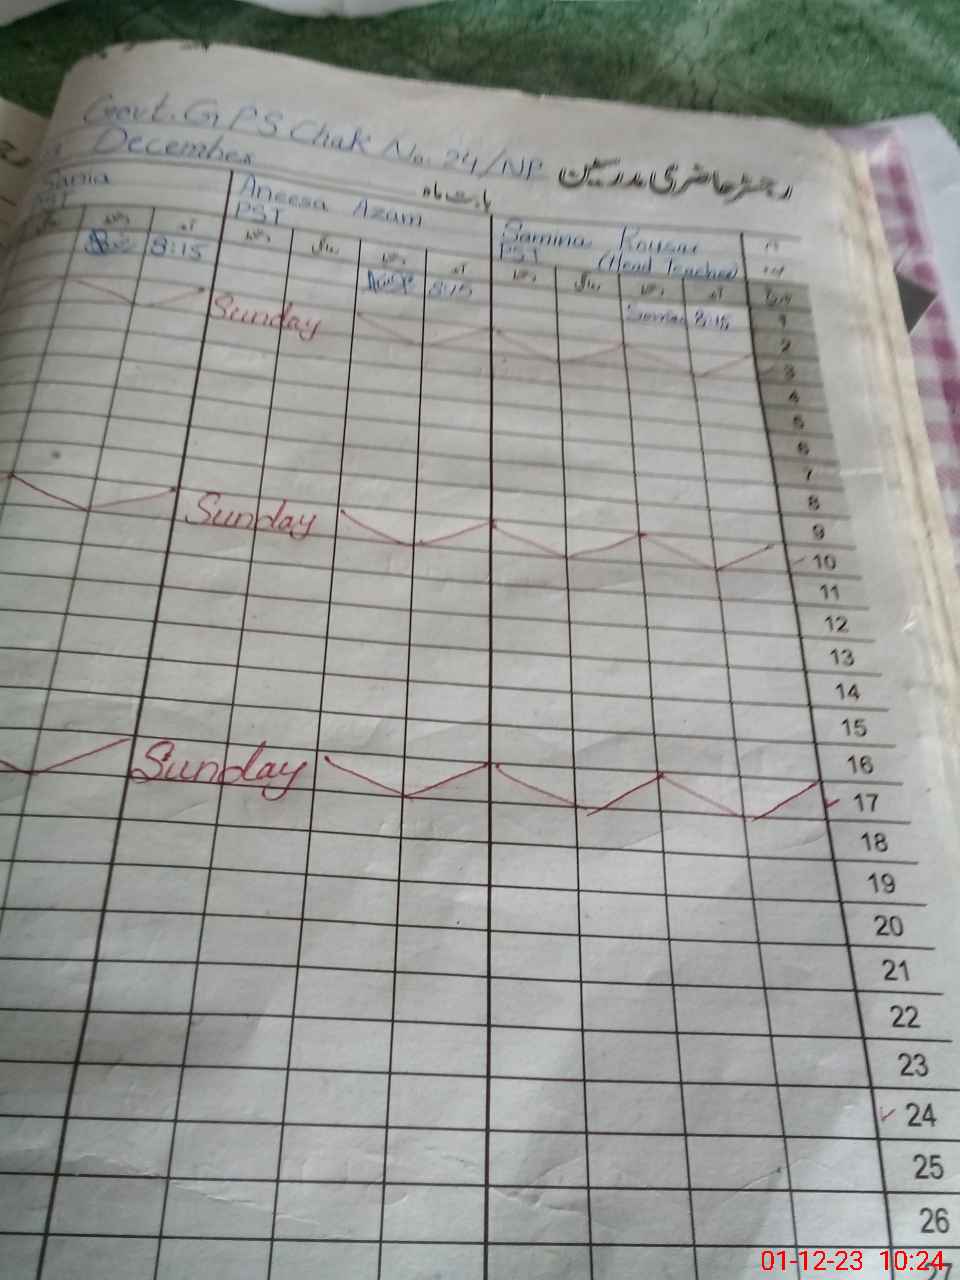 Govt. G P S Chak No. 24/NP رجسٹر حاضری مدرسین
December بابت ماہ
Sania Aneesa Azam Samina Kousar
PST PST PST (Head Teacher)
دستخط آمد دستخط روانگی دستخط آمد دستخط روانگی دستخط آمد تاریخ
8:15 8:15 8:15 1
2
Sunday 3
4
5
6
7
8
9
Sunday 10
11
12
13
14
15
16
Sunday 17
18
19
20
21
22
23
24
25
26
27
01-12-23 10:24